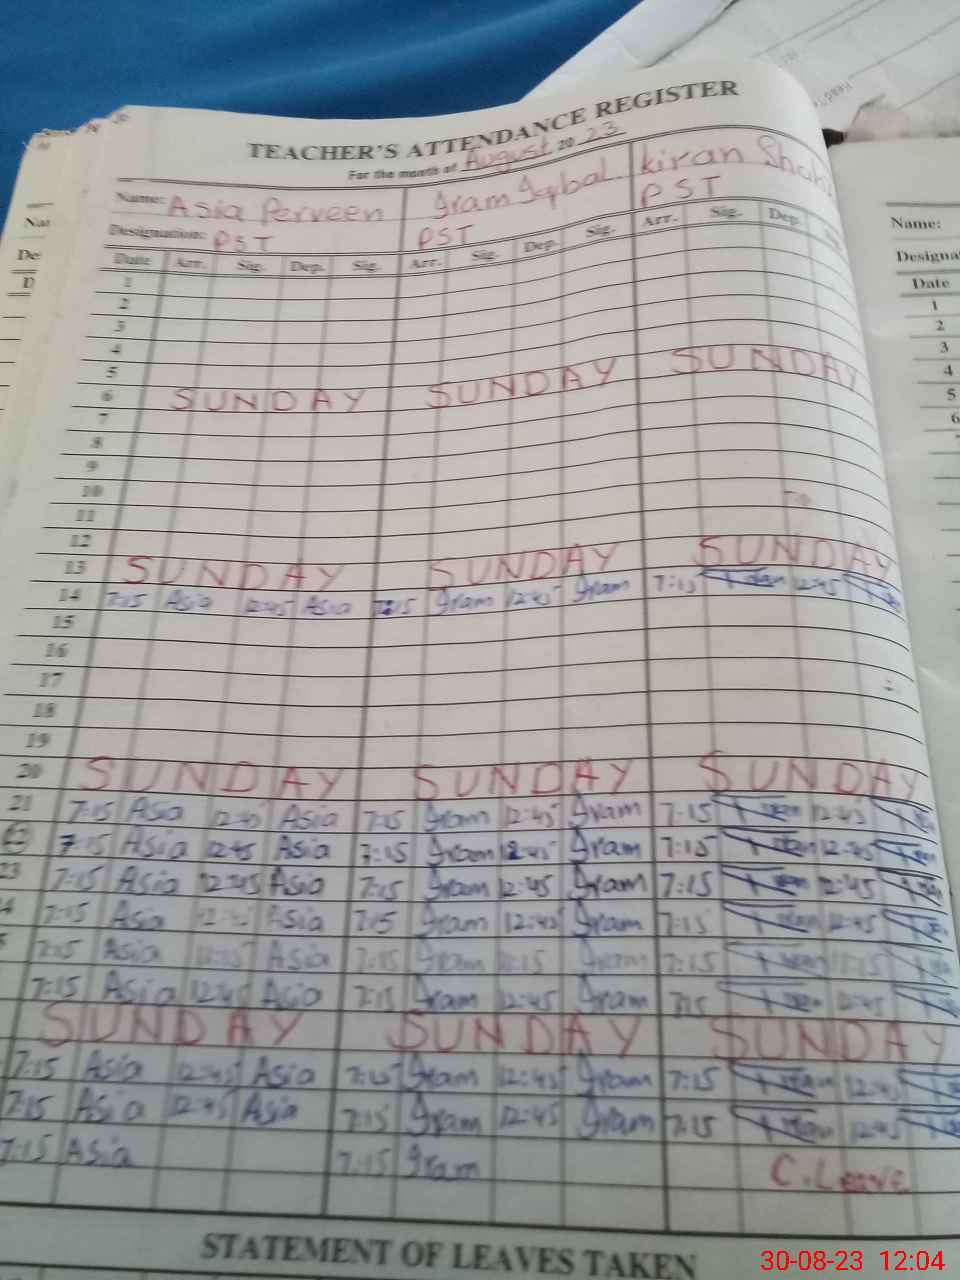 TEACHER'S ATTENDANCE REGISTER
For the month of August 20 23
Name: Asia Perveen Iram Iqbal Kiran
Designation: PST PST PST
Date Arr. Sig. Dep. Sig. Arr. Sig. Dep. Sig. Arr. Sig. Dep.
1
2
3
4
5
6 SUNDAY SUNDAY SUNDAY
7
8
9
10
11
12
13 SUNDAY SUNDAY SUNDAY
14 7:15 Asia 12:45 Asia 7:15 Iram 12:45 Iram 7:15 12:45
15
16
17
18
19
20 SUNDAY SUNDAY SUNDAY
21 7:15 Asia 12:45 Asia 7:15 Iram 12:45 Iram 7:15 12:45
22 7:15 Asia 12:45 Asia 7:15 Iram 12:45 Iram 7:15 12:45
23 7:15 Asia 12:45 Asia 7:15 Iram 12:45 Iram 7:15 12:45
7:15 Asia 12:45 Asia 7:15 Iram 12:45 Iram 7:15 12:45
7:15 Asia Asia 7:15 Iram 11:15 Iram 7:15 11:15
7:15 Asia 12:45 Asia 7:15 Iram 12:45 Iram 7:15 12:45
SUNDAY SUNDAY SUNDAY
7:15 Asia 12:45 Asia 7:15 Iram 12:45 Iram 7:15 12:45
7:15 Asia 12:45 Asia 7:15 Iram 12:45 Iram 7:15 12:45
7:15 Asia 7:15 Iram C.Leave
STATEMENT OF LEAVES TAKEN
Name:
Designa
Date
1
2
3
4
5
6
30-08-23 12:04